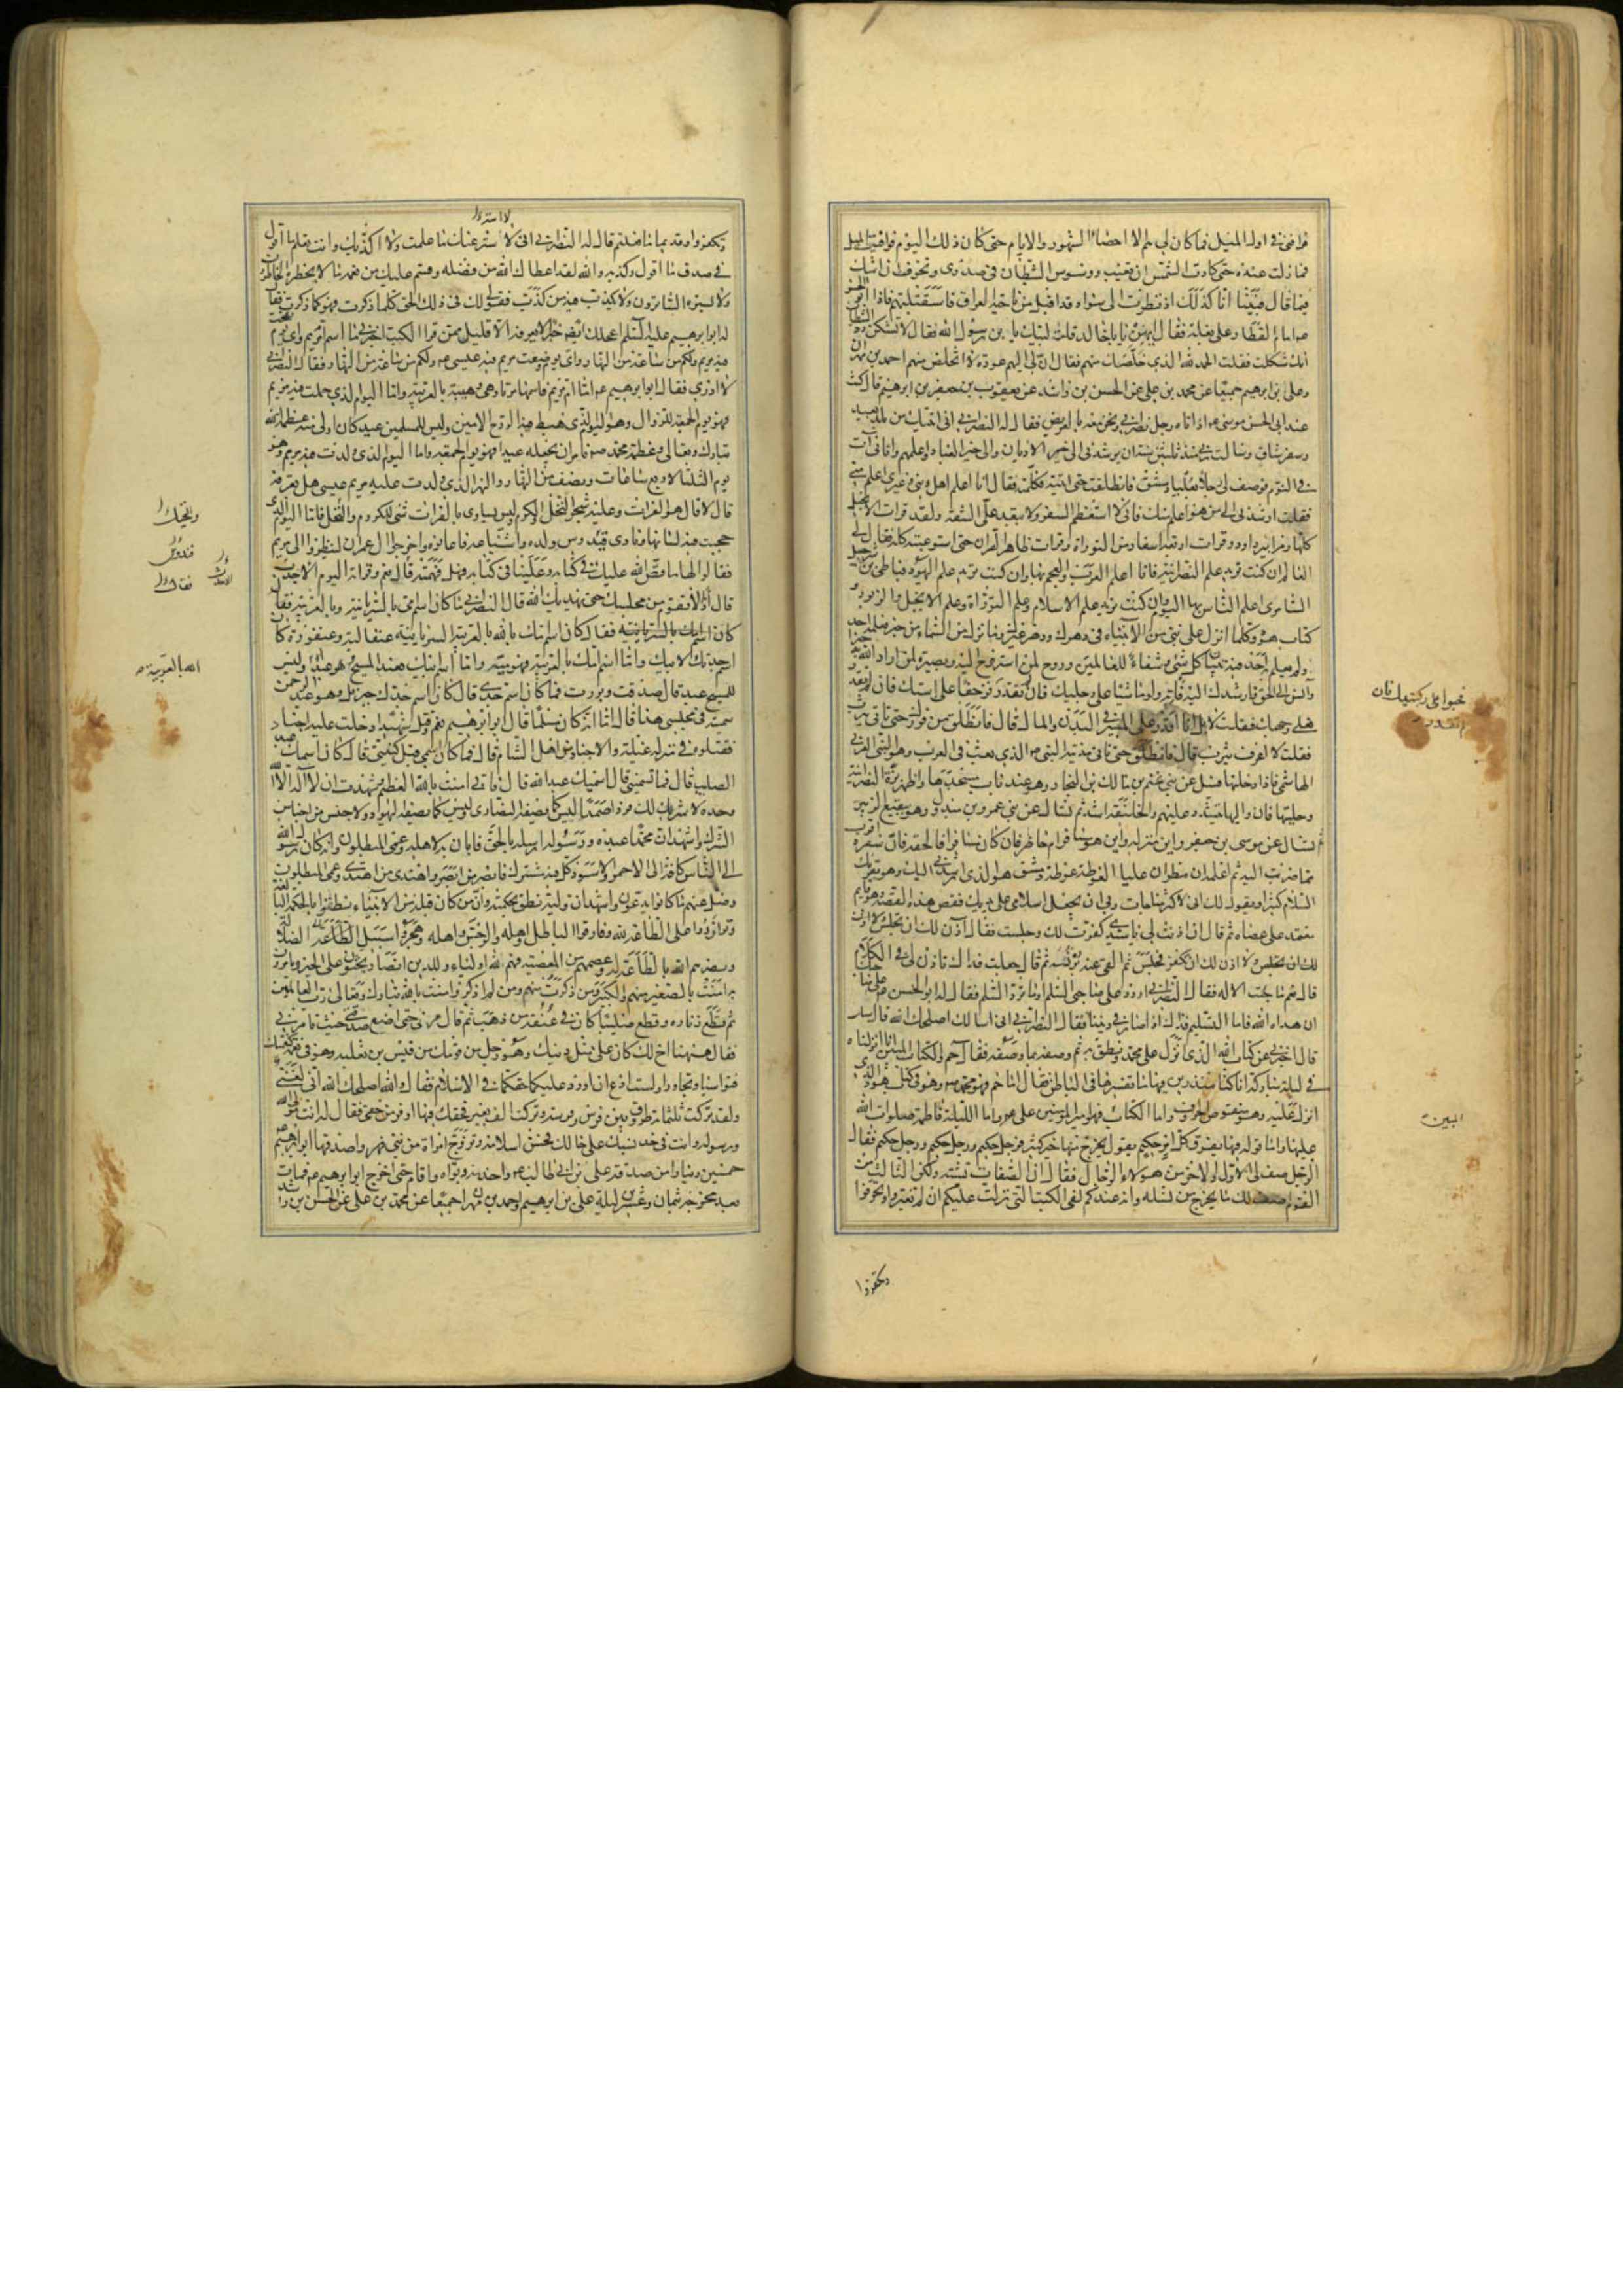 فوافنی فی اول المیل فما کان لی هم الا احصاء الشهور والایام حتی کان ذلک الیوم فوافیت المیل
فما زلت عنده حتی کادت الشمس ان تغیب ووسوس الشیطان فی صدری وتخوفت ان اشک
فیما قال فبینا انا کذلک اذ نظرت الی سواد قد اقبل من ناحیة العراق فاستقبلتهم فاذا ابو الحسن
امام القطار علی بغلة فقال ایهن یا با خالد قلت لبیک یا بن رسول الله فقال لا تشکن ود الشیطان
انک شککت فقلت الحمد لله الذی خلصک منهم فقال ان لی الیهم عودة لا اتخلص منهم احمد بن مهران
وعلی بن ابرهیم جمیعا عن محمد بن علی عن الحسن بن راشد عن یعقوب بن جعفر بن ابرهیم قال کنت
عند ابی الحسن موسی اذ اتاه رجل نصرانی ونحن معه بالعریض فقال له النصرانی انی اتیتک من بلد بعید
وسفر شاق وسالت ربی منذ ثلثین سنة ان یرشدنی الی خیر الادیان والی خیر العباد واعلمهم واتانی ات
فی النوم فوصف لی رجلا بعلیا دمشق فانطلقت حتی اتیته فکلمته فقال انا اعلم اهل دینی وغیری اعلم منی
فقلت ارشدنی الی من هو اعلم منک فانی لا استعظم السفر ولا تبعد علی الشقة ولقد قرات الانجیل
کلها ومزامیر داود وقرات اربعة اسفار من التوراة وقرات ظاهر القران حتی استوعبته کله فقال لی
العالم ان کنت ترید علم النصرانیة فانا اعلم العرب والعجم بها وان کنت ترید علم الیهود فباطی بن شرحبیل
السامری اعلم الناس بها الیوم وان کنت ترید علم الاسلام وعلم التوراة وعلم الانجیل والزبور و
کتاب هود وکلما انزل علی نبی من الانبیاء فی دهرک ودهر غیرک وما نزل من السماء من خبر فعلمه احد
ولم یعلم به احد فیه تبیان کل شی وشفاء للعالمین وروح لمن استروح الیه وبصیرة لمن اراد الله به خیرا
وانس الی الحق فارشدک الیه فاته ولو مشیا علی رجلیک فان لم تقدر فزحفا علی استک فان لم تقدر
فعلی وجهک فقلت لا بل انا اقدر علی المسیر فی البدن والمال قال فانطلق من فورک حتی تاتی یثرب
فقلت لا اعرف یثرب قال فانطلق حتی تاتی مدینة النبی الذی بعث فی العرب وهو النبی العربی
الهاشمی فاذا دخلتها فسل عن بنی غنم بن مالک بن النجار وهو عند باب مسجدها واظهر بزة النصرانیة
وحلیتها فان والیها یتشدد علیهم والخلیفة اشد ثم تسال عن بنی عمرو بن مبذول وهو ببقیع الزبیر
ثم تسال عن موسی بن جعفر واین منزله واین هو مسافر ام حاضر فان کان مسافرا فالحقه فان سفره اقرب
مما ضربت الیه ثم اعلمه ان مطران علیا الغوطة غوطة دمشق هو الذی ارشدنی الیک وهو یقرئک
السلام کثیرا ویقول لک انی لاکثر مناجات ربی ان یجعل اسلامی علی یدیک فقص هذه القصة وهو قایم
معتمد علی عصاه ثم قال ان اذنت لی یا سیدی کفرت لک وجلست فقال اذن لک ان تجلس ولا اذن
لک ان تکفر فجلس ثم القی عنه برنسه ثم قال جعلت فداک تاذن لی فی الکلام
قال نعم ما جئت الا له فقال له النصرانی اردد علی صاحبی السلام او ما ترد السلام فقال له ابو الحسن علی صاحبک
ان هداه الله فاما التسلیم فذاک اذا صار فی دیننا فقال النصرانی انی اسالک اصلحک الله قال سل
قال اخبرنی عن کتاب الله الذی نزل علی محمد ونطق به ثم وصفه بما وصفه فقال حم والکتاب المبین انا انزلناه
فی لیلة مبارکة انا کنا منذرین فیها ما تفسیرها فی الباطن فقال اما حم فهو محمد وهو فی کتاب هود الذی
انزل علیه وهو منقوص الحروف واما الکتاب فهو امیر المومنین علی واما اللیلة فاطمة صلوات الله
علیها واما قوله فیها یفرق کل امر حکیم یقول یخرج منها خیر کثیر فرجل حکیم ورجل حکیم ورجل حکیم فقال
الرجل صف لی الاول والاخر من هولاء الرجال فقال ان الصفات تشتبه ولکن الثالث من
القوم اصف لک ما یخرج من نسله وانه عندکم لفی الکتب التی نزلت علیکم ان لم تغیروا وتحرفوا
المبین
وتکفروا
لا استر ۱
وتکفروا وقدیما ما فعلتم قال له النصرانی انی لا استر عنک ما علمت ولا اکذبک وانت تعلم ما اقول
فی صدق ما اقول وکذبه والله لقد اعطاک الله من فضله وقسم علیک من نعمه ما لا یخطره الخاطرون
ولا یستره الساترون ولا یکذب فیه من کذب فقولی لک فی ذلک الحق کلما ذکرت فهو کما ذکرت فقال
له ابو ابرهیم علیه السلم اعجلک ایضا خبرا لا یعرفه الا قلیل ممن قرا الکتب اخبرنی ما اسم ام مریم وای یوم نفخت
فیه مریم ولکم من ساعة من النهار وای یوم وضعت مریم فیه عیسی ولکم من ساعة من النهار فقال النصرانی
لا ادری فقال ابو ابرهیم اما ام مریم فاسمها مرثا وهی وهیبة بالعربیة واما الیوم الذی حملت فیه مریم
فهو یوم الجمعة للزوال وهو الیوم الذی هبط فیه الروح الامین ولیس للمسلمین عید کان اولی منه عظمه الله
تبارک وتعالی وعظمه محمد فامر ان یجعله عیدا فهو یوم الجمعة واما الیوم الذی ولدت فیه مریم وهو
یوم الثلثا لاربع ساعات ونصف من النهار والنهر الذی ولدت علیه مریم عیسی هل تعرفه
قال لا قال هو الفرات وعلیه شجر النخل والکرم ولیس یساوی بالفرات شی للکروم والنخل فاما الیوم الذی
حجبت فیه لسانها ونادی قیدوس ولده واشیاعه فاعانوه واخرجوا ال عمران لینظروا الی مریم
فقالوا لها ما قص الله علیک فی کتابه وعلینا فی کتابه فهل فهمته قال نعم وقراته الیوم الاحدث
قال اذا لا تقوم من مجلسک حتی یهدیک الله قال النصرانی ما کان اسم امی بالسریانیة وبالعربیة فقال
کان اسم امک بالسریانیة عنقالیة وعنقورة کان
اسم جدتک لابیک واما اسم امک بالعربیة فهو میة واما اسم ابیک فعبد المسیح وهو عبد الله ولیس
للمسیح عبد قال صدقت وبررت فما کان اسم جدی قال کان اسم جدک جبرئیل وهو عبد الرحمن
سمیته فی مجلسی هذا قال اما انه کان مسلما قال ابو ابرهیم نعم وقتل شهیدا دخلت علیه اجناد
فقتلوه فی منزله غیلة والاجناد من اهل الشام قال فما کان اسمی قبل کنیتی قال کان اسمک عبد
الصلیب قال فما تسمینی قال اسمیک عبد الله قال فانی امنت بالله العظیم وشهدت ان لا اله الا الله
وحده لا شریک له فردا صمدا لیس کما یصفه النصاری ولیس کما یصفه الیهود ولا جنس من اجناس
الشرک واشهد ان محمدا عبده ورسوله ارسله بالحق فابان به لاهله وعمی المبطلون وانه کان رسول الله
الی الناس کافة الی الاحمر والاسود وکل فیه مشترک فابصر من ابصر واهتدی من اهتدی وعمی المبطلون
وضل عنهم ما کانوا یدعون واشهد ان ولیه نطق بحکمته وان من کان قبله من الانبیاء نطقوا بالحکمة البالغة
وتوازروا علی الطاعة لله وفارقوا الباطل واهله والرجس واهله وهجروا سبیل الضلالة
ونصرهم الله بالطاعة له وعصمهم من المعصیة فهم لله اولیاء وللدین انصار یحثون علی الخیر ویامرون
به امنت بالصغیر منهم والکبیر ومن ذکرت منهم ومن لم اذکر وامنت بالله تبارک وتعالی رب العالمین
ثم قطع زناره وقطع صلیبا کان فی عنقه من ذهب ثم قال مرنی حتی اضع صدقتی حیث تامرنی
فقال ههنا اخ لک کان علی مثل دینک وهو رجل من قومک من قیس بن ثعلبة وهو فی نعمة کنعمتک
فتواسیا وتجاورا ولست ادع ان اورد علیکما حقکما فی الاسلام فقال والله اصلحک الله انی لغنی
ولقد ترکت ثلثمائة طروق بین فرس وفرسة وترکت الف بعیر فحقک فیها اوفر من حقی فقال له انت مولی الله
ورسوله وانت فی حد نسبک علی حالک فحسن اسلامه وتزوج امراة من بنی فهر واصدقها ابو ابرهیم
خمسین دینارا من صدقة علی بن ابی طالب واخدمه وبواه واقام حتی اخرج ابو ابرهیم فمات
بعد مخرجه بثمان وعشرین لیلة علی بن ابرهیم واحمد بن مهران جمیعا عن محمد بن علی عن الحسن بن راشد